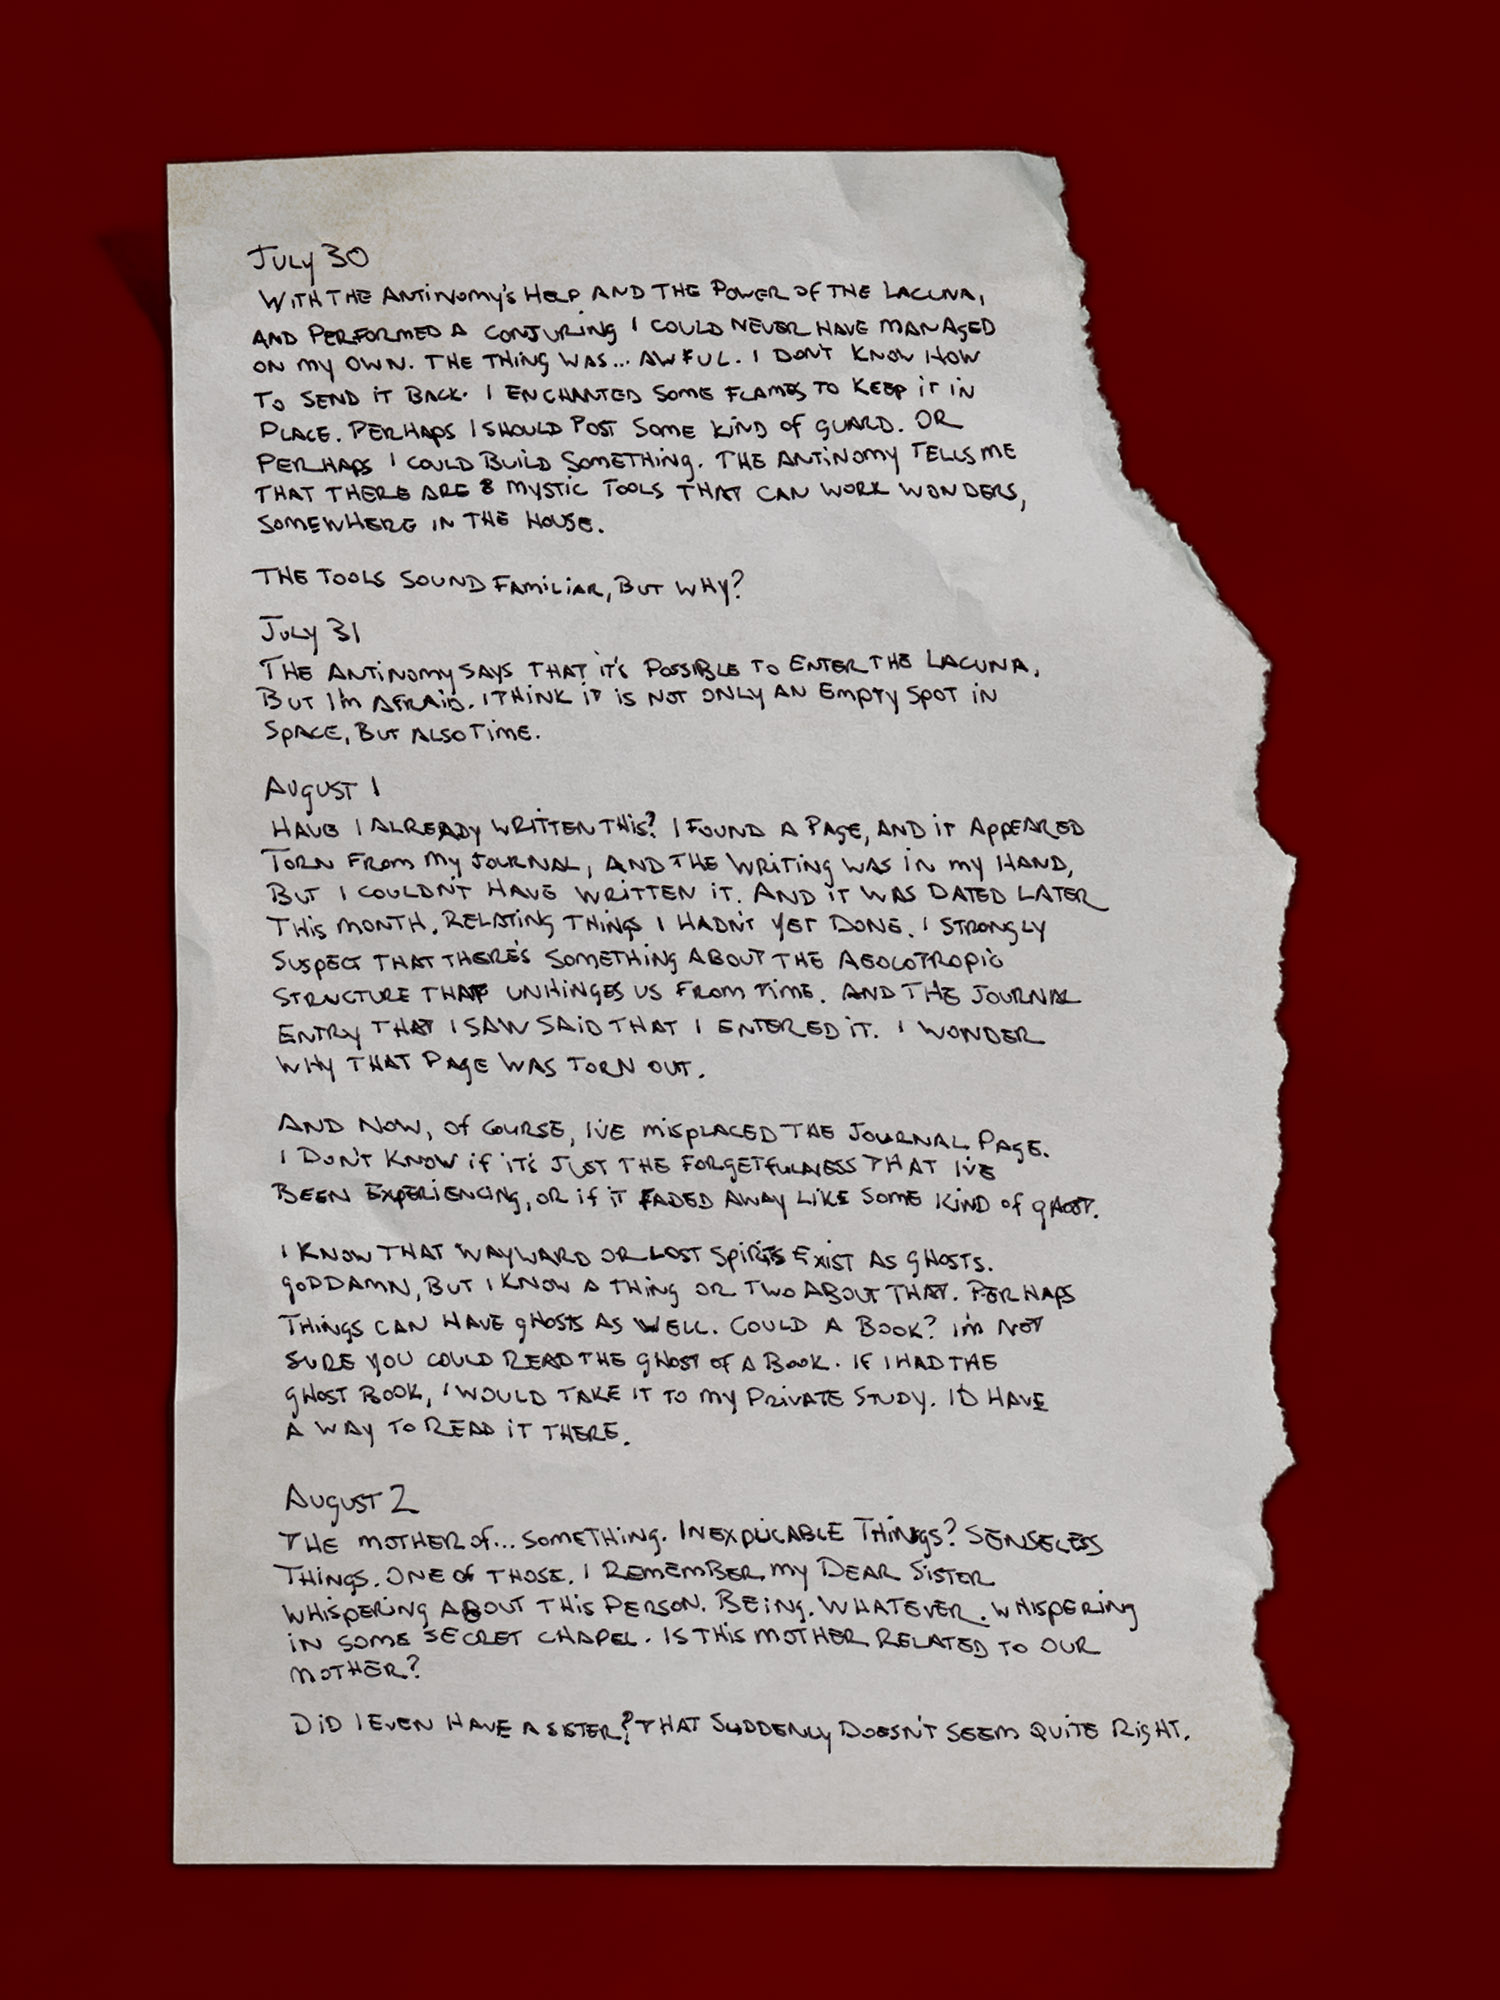 July 30
With the Antinomy's Help and the Power of the Lacuna,
and performed a conjuring I could never have managed
on my own. The thing was... awful. I don't know how
to send it back. I enchanted some flames to keep it in
place. Perhaps I should post some kind of guard. Or
perhaps I could build something. The Antinomy tells me
that there are 8 mystic tools that can work wonders,
somewhere in the house.
The tools sound familiar, but why?
July 31
The Antinomy says that it's possible to enter the Lacuna,
But I'm afraid. I think it is not only an empty spot in
space, but also time.
August 1
Have I already written this? I found a page, and it appeared
torn from my journal, and the writing was in my hand,
but I couldn't have written it. And it was dated later
this month, relating things I hadn't yet done. I strongly
suspect that there's something about the Aeolotropic
structure that unhinges us from time. And the journal
entry that I saw said that I entered it. I wonder
why that page was torn out.
And now, of course, I've misplaced the journal page.
I don't know if it's just the forgetfulness that I've
been experiencing, or if it faded away like some kind of ghost.
I know that wayward or lost spirits exist as ghosts.
Goddamn, but I know a thing or two about that. Perhaps
things can have ghosts as well. Could a book? I'm not
sure you could read the ghost of a book. If I had the
ghost book, I would take it to my private study. I'd have
a way to read it there.
August 2
The mother of... something. Inexplicable things? Senseless
things. One of those. I remember my dear sister
whispering about this person. Being. Whatever. Whispering
in some secret chapel. Is this mother related to our
mother?
Did I even have a sister? That suddenly doesn't seem quite right.